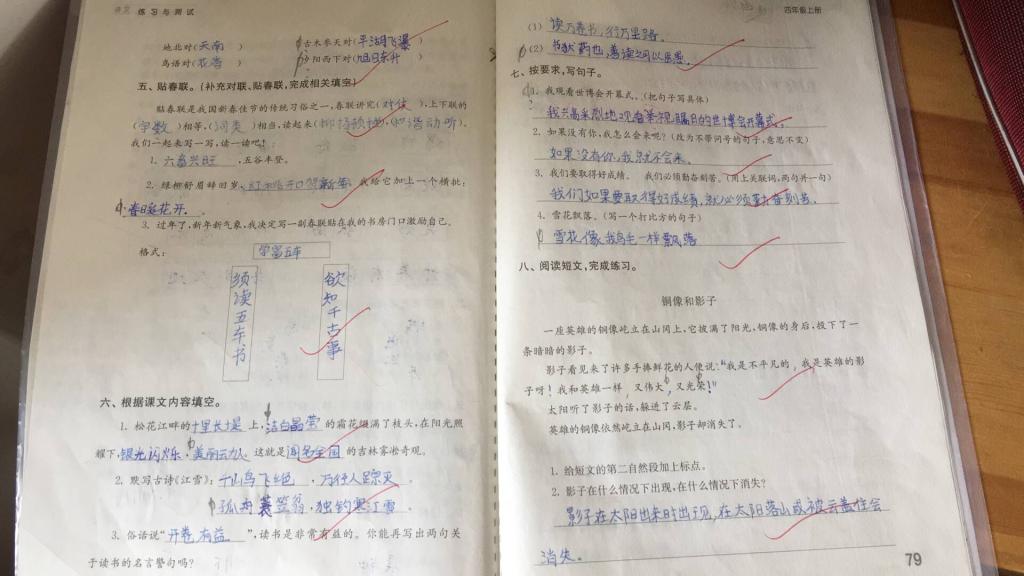 语文 练习与测试
地北对(天南)
古木参天对(平湖飞瀑)
鸟语对(花香)
夕阳西下对(旭日东升)
五、贴春联。(补充对联、贴春联,完成相关填空)
贴春联是我国新春佳节的传统习俗之一,春联讲究(对仗),上下联的
(字数)相等,(词类)相当,读起来(抑扬顿挫,和谐动听)。
我们一起来写一写,读一读吧!
1. 六畜兴旺,五谷丰登。
2. 绿柳舒眉辞旧岁,红桃开口贺新年,我给它加上一个横批:
春暖花开。
3. 过年了,新年新气象,我决定写一副春联贴在我的书房门口激励自己。
格式:
学富五车
须读五车书
欲知千古事
六、根据课文内容填空。
1. 松花江畔的十里长堤上,洁白晶莹的霜花缀满了枝头,在阳光照
耀下,银光闪烁,美丽动人。这就是闻名全国的吉林雾凇奇观。
2. 默写古诗《江雪》:千山鸟飞绝,万径人踪灭。
孤舟蓑笠翁,独钓寒江雪。
3. 俗话说"开卷有益",读书是非常有益的。你能再写出两句关
于读书的名言警句吗?
四年级上册
(1) 读万卷书,行万里路。
(2) 书犹药也,善读之可以医愚。
七、按要求,写句子。
1. 我观看世博会开幕式。(把句子写具体)
我兴高采烈地观看举视瞩目的世博会开幕式。
2. 如果没有你,我怎么会来呢?(改为不带问号的句子,意思不变)
如果没有你,我就不会来。
3. 我们要取得好成绩。 我们必须勤奋刻苦。(用上关联词,两句并一句)
我们如果要取得好成绩,就必须勤奋刻苦。
4. 雪花飘落。(写一个打比方的句子)
雪花像鹅毛一样飘落
八、阅读短文,完成练习。
铜像和影子
一座英雄的铜像屹立在山冈上,它披满了阳光,铜像的身后,投下了一
条暗暗的影子。
影子看见来了许多手捧鲜花的人便说:"我是不平凡的,我是英雄的影
子呀!我和英雄一样,又伟大,又光荣!"
太阳听了影子的话,躲进了云层。
英雄的铜像依然屹立在山冈,影子却消失了。
1. 给短文的第二自然段加上标点。
2. 影子在什么情况下出现,在什么情况下消失?
影子在太阳出来时出现,在太阳落山或被云盖住会
消失。
79